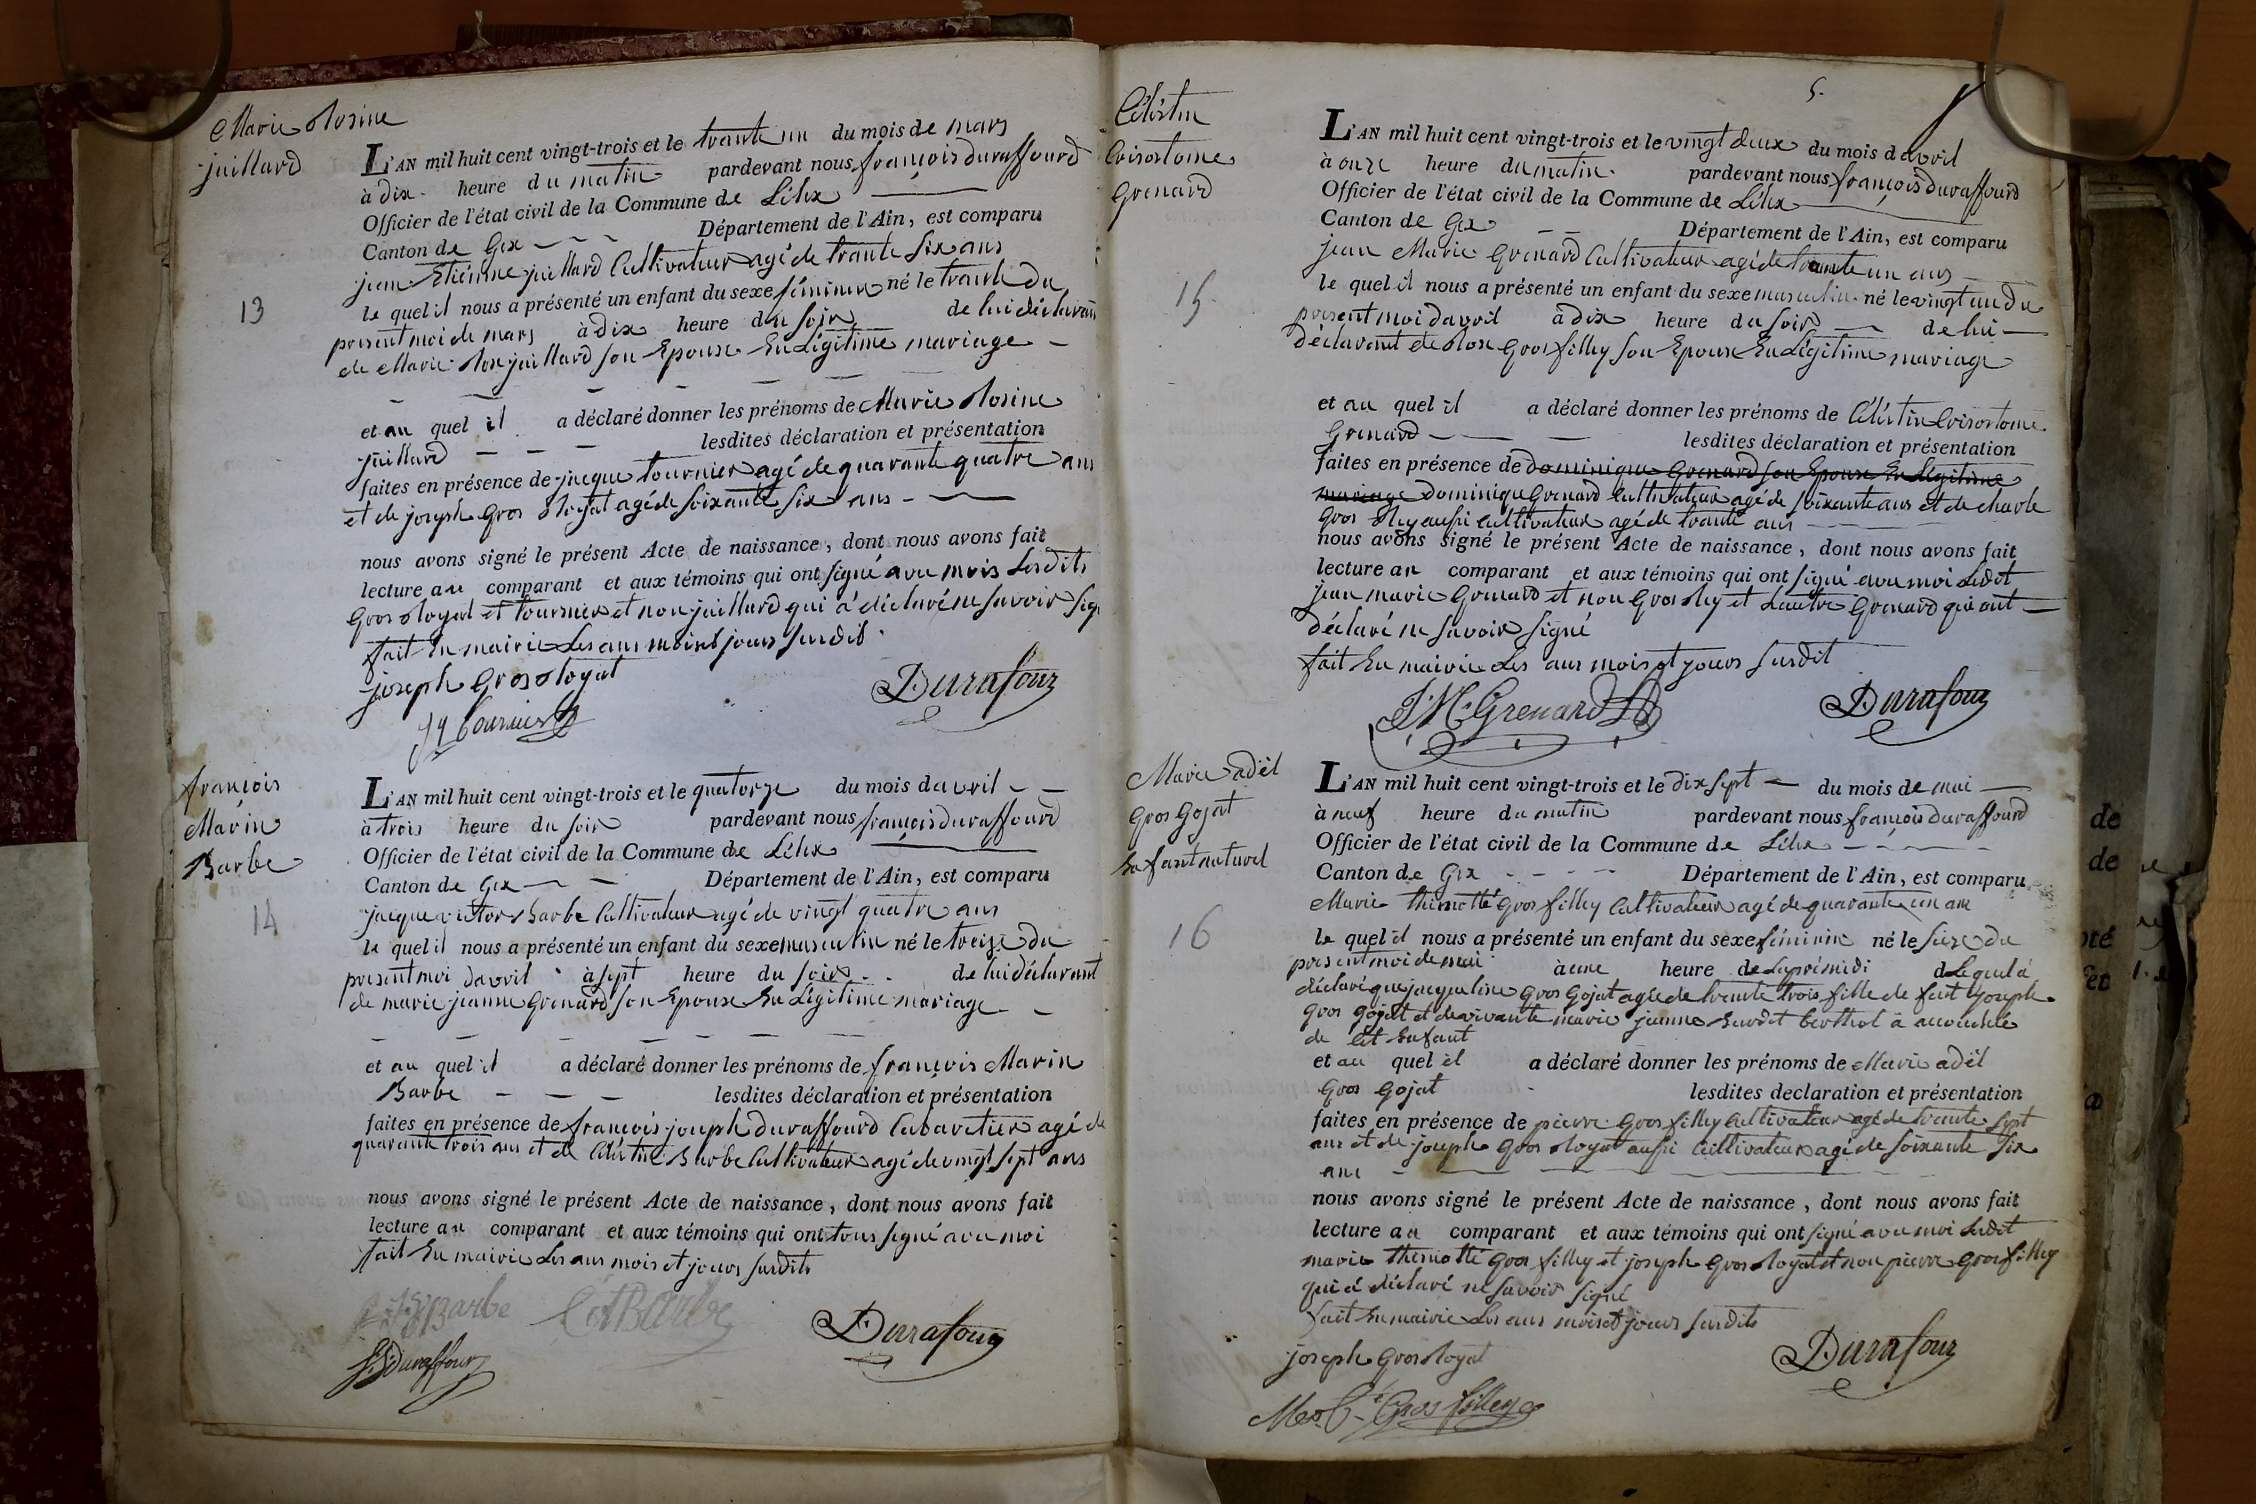 Marie Rosine
juillard
13
L'AN mil huit cent vingt-trois et le trante un du mois de mars
à dix heure du matin pardevant nous françois duraffourd
Officier de l'état civil de la Commune de Lélex
Canton de Gex Département de l'Ain, est comparu
jean Etienne juillard Cultivateur agé de trante six ans
le quel il nous a présenté un enfant du sexe féminin né le trante du
présent moi de mars à dix heure du soir de lui déclarant
de Marie Rose juillard son Epouse En Légitime mariage
et au quel il a déclaré donner les prénoms de Marie Rosine
juillard lesdites déclaration et présentation
faites en présence de jacque tournier agé de quarante quatre ans
et de joseph gros Royat agé de soixante six ans
nous avons signé le présent Acte de naissance, dont nous avons fait
lecture au comparant et aux témoins qui ont signé avec moi Lesdits
gros Royat et tournier et non juillard qui a déclaré ne savoir sig
fait En mairie Les ans mois et jours susdit
joseph gros Royat
Jq tournier
Durafour
françois
Marin
Barbe
14
L'AN mil huit cent vingt-trois et le quatorze du mois davril
à trois heure du soir pardevant nous françois duraffourd
Officier de l'état civil de la Commune de Lélex
Canton de Gex Département de l'Ain, est comparu
jacque victor Barbe Cultivateur agé de vingt quatre ans
le quel il nous a présenté un enfant du sexe masculin né le treize du
présent moi davril à sept heure du soir de lui déclarant
de marie jeanne Grenard son Epouse En Légitime mariage
et au quel il a déclaré donner les prénoms de françois Marin
Barbe lesdites déclaration et présentation
faites en présence de françois joseph duraffourd Cabaretier agé de
quarante trois ans et de Céléstin Barbe Cultivateur agé de vingt sept ans
nous avons signé le présent Acte de naissance, dont nous avons fait
lecture au comparant et aux témoins qui ont tous signé avec moi
fait En mairie Les ans mois et jours susdits
Barbe
Barbe
Durafour
duraffour
5.
Céléstin
Crisostome
Grenard
15
L'AN mil huit cent vingt-trois et le vingt deux du mois davril
à onze heure du matin pardevant nous françois duraffourd
Officier de l'état civil de la Commune de Lélex
Canton de Gex Département de l'Ain, est comparu
jean Marie Grenard Cultivateur agé de trante un ans
le quel il nous a présenté un enfant du sexe masculin né le vingt un du
présent moi davril à dix heure du soir de lui
déclarant de Rose gros filley son Epouse En Légitime mariage
et au quel il a déclaré donner les prénoms de Céléstin Crisostome
Grenard lesdites déclaration et présentation
faites en présence de dominique Grenard son Epouse En Légitime
mariage Dominique Grenard Cultivateur agé de soixante ans et de charle
gros aussi cultivateur agé de trante ans
nous avons signé le présent Acte de naissance, dont nous avons fait
lecture au comparant et aux témoins qui ont signé avec moi Ledit
jean marie Grenard et non gros et Lautre Grenard qui ont
déclaré ne savoir signé
fait En mairie Les ans mois et jours susdit
J. M. Grenard
Durafour
Marie adèl
gros Gojat
Enfant naturel
16
L'AN mil huit cent vingt-trois et le dix sept du mois de mai
à neuf heure du matin pardevant nous françois duraffourd
Officier de l'état civil de la Commune de Lélex
Canton de Gex Département de l'Ain, est comparu
Marie thimotté gros filley Cultivateur agé de quarante un ans
le quel il nous a présenté un enfant du sexe féminin né le seize du
présent moi de mai à une heure de laprémidi de Lequel a
déclaré que jacqueline gros gojat agée de trante trois fille de feut joseph
gros gojat et de vivante marie jeanne à accouchée
de Cet Enfant
et au quel il a déclaré donner les prénoms de Marie adèl
gros Gojat lesdites declaration et présentation
faites en présence de pierre gros filley Cultivateur agé de trante sept
ans et de joseph gros Royat aussi Cultivateur agé de soixante six
ans
nous avons signé le présent Acte de naissance, dont nous avons fait
lecture au comparant et aux témoins qui ont signé avec moi Ledit
marie thimotté gros filley et joseph gros Royat et non pierre gros filley
qui a déclaré ne savoir signé
fait En mairie Les ans mois et jours susdits
joseph gros Royat
Durafour
Gros filley
de
de